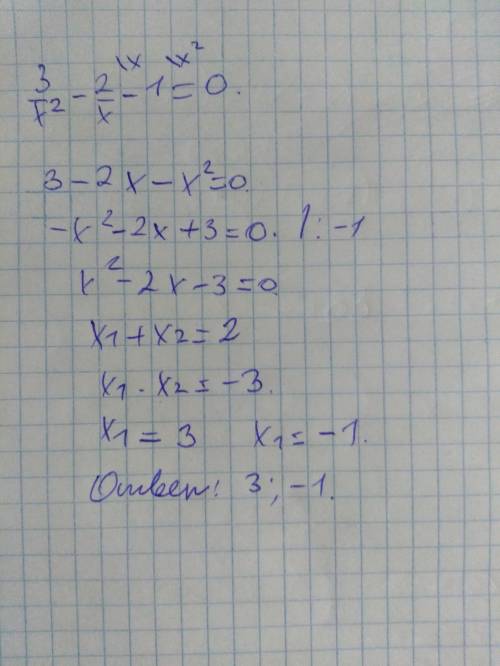 3/x² - 2/x \x - 1 \x² = 0.
3 - 2x - x² = 0.
-x² - 2x + 3 = 0. /: -1
x² - 2x - 3 = 0
x₁ + x₂ = 2
x₁ · x₂ = -3.
x₁ = 3 x₁ = -1.
Ответ: 3; -1.